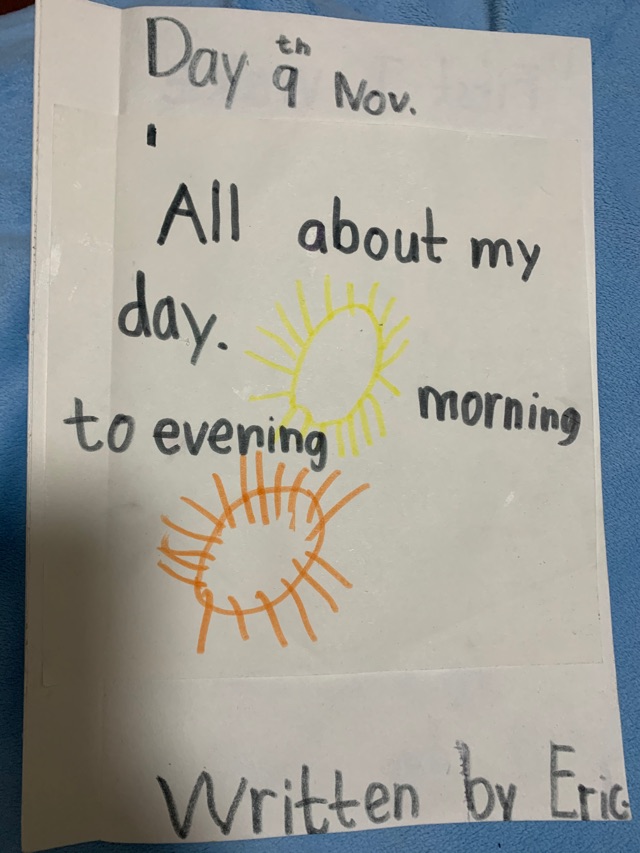 Day 9th Nov.
All about my
day.
morning
to evening
Written by Eric